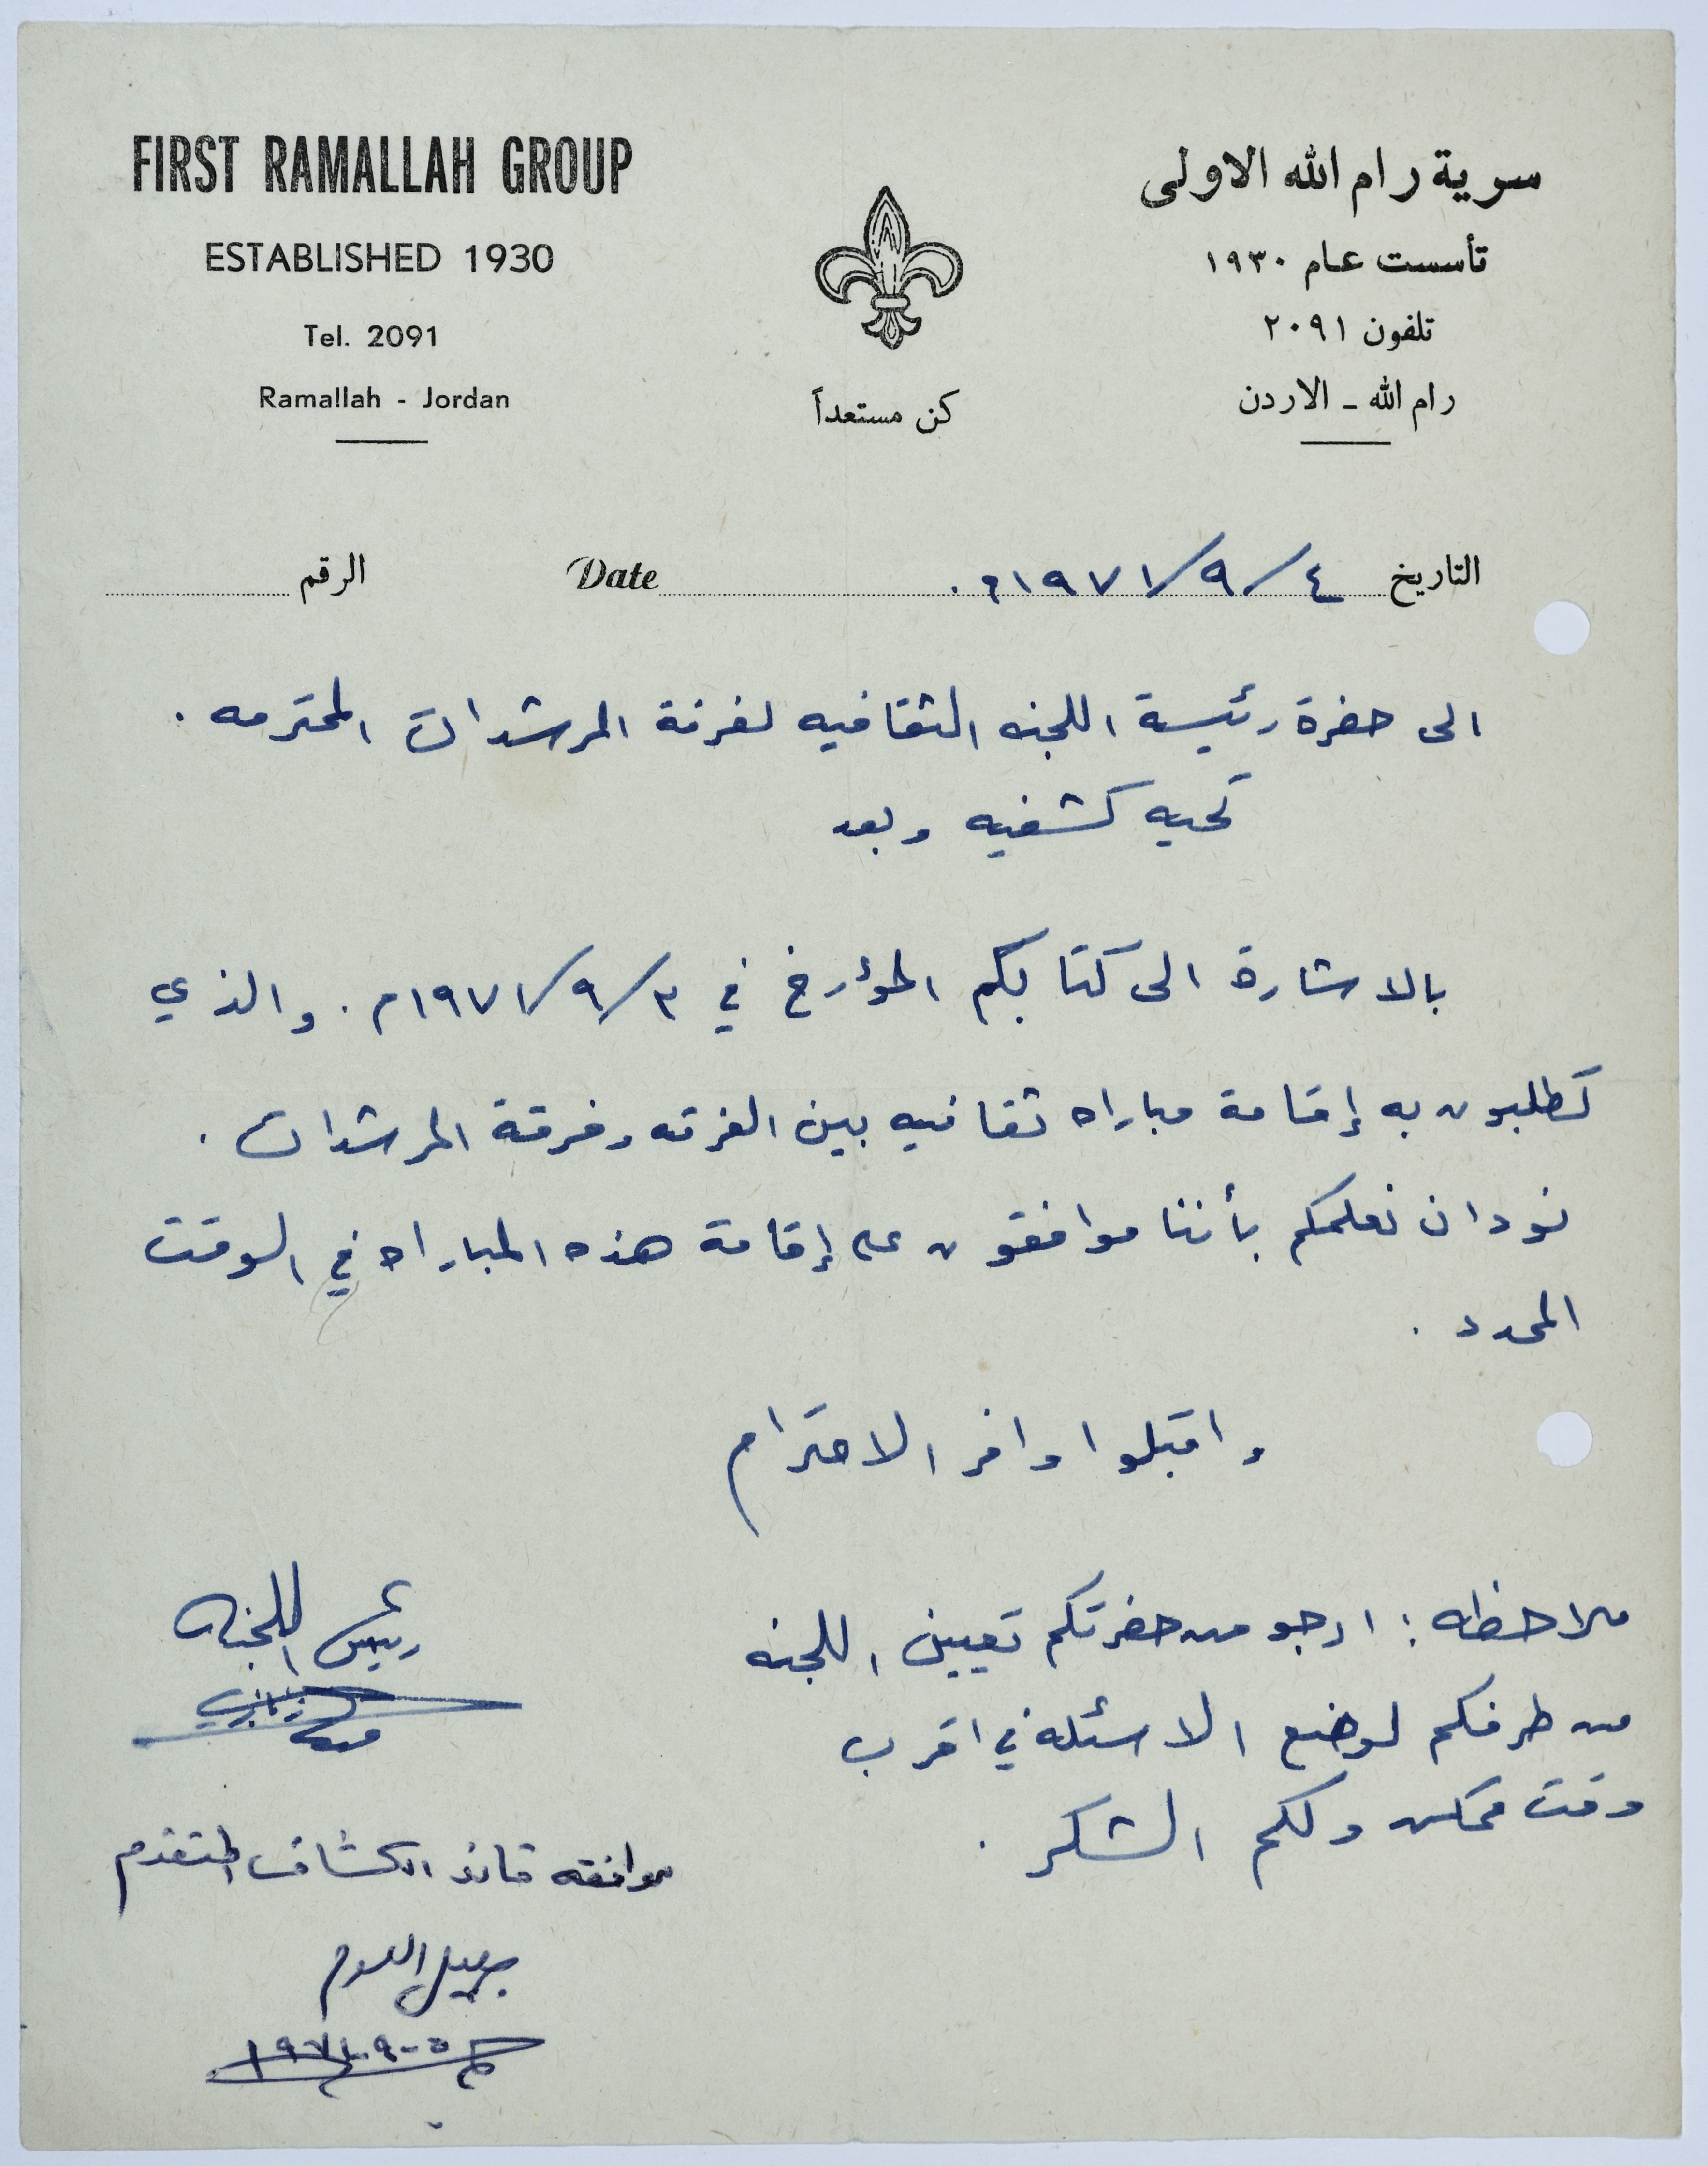 FIRST RAMALLAH GROUP
ESTABLISHED 1930
Tel. 2091
Ramallah - Jordan
كن مستعداً
سرية رام الله الاولى
تأسست عام ١٩٣٠
تلفون ٢٠٩١
رام الله ـ الاردن
التاريخ ٤/٩/١٩٧١م. Date الرقم
الى حضرة رئيسة اللجنه الثقافيه لفرقة المرشدات المحترمه .
تحيه كشفيه وبعد
بالاشارة الى كتابكم المؤرخ في ٣/٩/١٩٧١م . والذي
تطلبون به إقامة مباراه ثقافيه بين الفرقه وفرقة المرشدات .
نود ان نعلمكم بأننا موافقون على إقامة هذه المباراه في الوقت
المحدد .
واقبلوا وافر الاحترام
ملاحظه : ارجو من حضرتكم تعيين اللجنه
من طرفكم لوضع الاسئله في اقرب
وقت ممكن ولكم الشكر .
رئيس اللجنه
موافقه قائد الكشاف المتقدم
٥-٩-١٩٧١